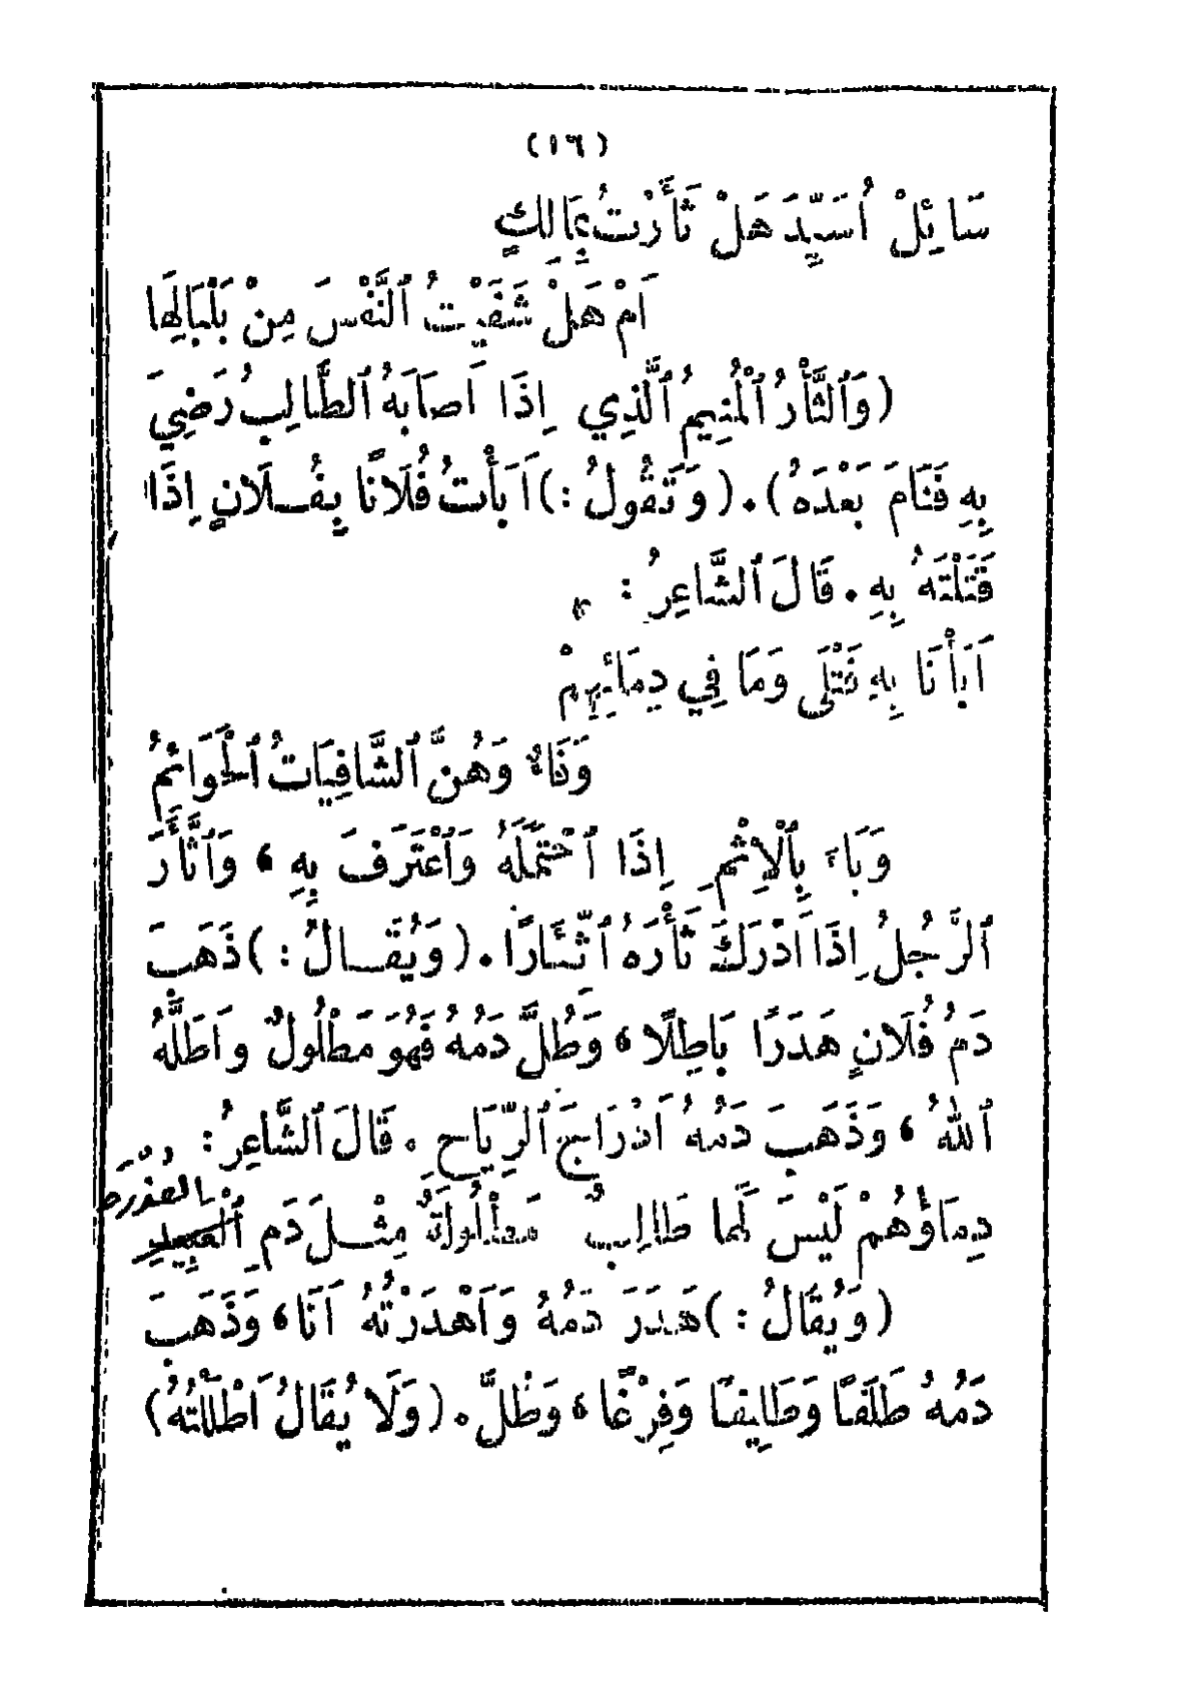 (١٦)
سَائِلْ أُسَيِّدَ هَلْ ثَأَرْتُ بِمَالِكٍ
اَمْ هَلْ شَفَيْتُ ٱلنَّفْسَ مِنْ بَلْبَالِهَا
(وَٱلثَّأْرُ ٱلْمُنِيمُ ٱلَّذِي إِذَا اَصَابَهُ ٱلطَّالِبُ رَضِيَ
بِهِ فَنَامَ بَعْدَهُ). (وَتَقُولُ:) اَبَأْتُ فُلَانًا بِفُلَانٍ إِذَا
قَتَلْتَهُ بِهِ. قَالَ ٱلشَّاعِرُ:
اَبَأْنَا بِهِ قَتْلَى وَمَا فِي دِمَائِهِمْ
وَفَاءٌ وَهُنَّ ٱلشَّافِيَاتُ ٱلْحَوَائِمُ
وَبَاءَ بِٱلْإِثْمِ إِذَا ٱحْتَمَلَهُ وَٱعْتَرَفَ بِهِ، وَٱثَّأَرَ
ٱلرَّجُلُ إِذَا اَدْرَكَ ثَأْرَهُ ٱثِّئَارًا. (وَيُقَالُ:) ذَهَبَ
دَمُ فُلَانٍ هَدَرًا بَاطِلًا، وَطُلَّ دَمُهُ فَهُوَ مَطْلُولٌ وَاَطَلَّهُ
ٱللهُ، وَذَهَبَ دَمُهُ اَدْرَاجَ ٱلرِّيَاحِ. قَالَ ٱلشَّاعِرُ:
دِمَاؤُهُمْ لَيْسَ لَهَا طَالِبٌ مَطْلُولَةٌ مِثْلَ دَمِ ٱلْعَبِيدِ
(وَيُقَالُ:) هَدَرَ دَمُهُ وَاَهْدَرْتُهُ اَنَا، وَذَهَبَ
دَمُهُ طَلَفًا وَطَلِيفًا وَفِرْغًا، وَطُلَّ. (وَلَا يُقَالُ اَطْلَلْتُهُ)